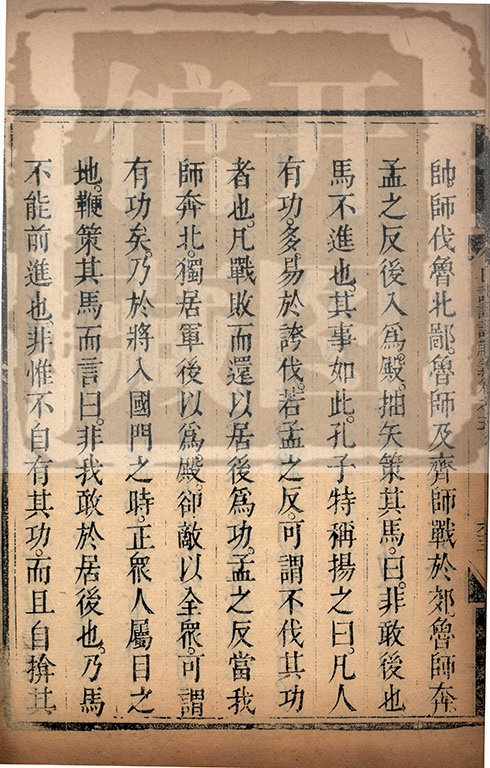 帥師伐魯北鄙。魯師及齊師戰於郊。魯師奔
孟之反後入爲殿。抽矢策其馬。曰。非敢後也
馬不進也。其事如此。孔子特稱揚之曰。凡人
有功。多易於誇伐。若孟之反。可謂不伐其功
者也。凡戰敗而還以居後爲功。孟之反當我
師奔北。獨居軍後以爲殿。卻敵以全衆。可謂
有功矣。乃於將入國門之時。正衆人屬目之
地。鞭策其馬而言曰。非我敢於居後也。乃馬
不能前進也。非惟不自有其功。而且自揜其